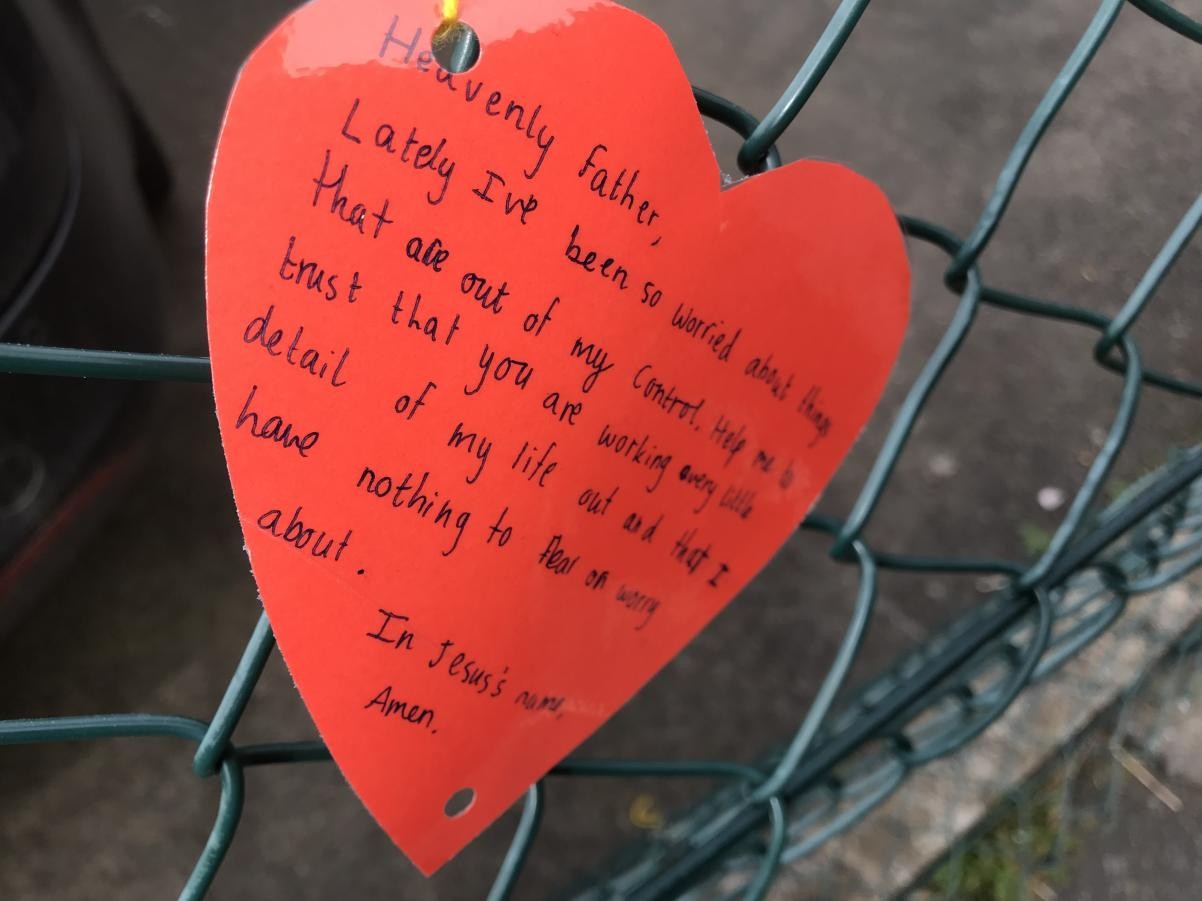 Heavenly Father,
Lately I've been so worried about things
that are out of my control. Help me to
trust that you are working every little
detail of my life out and that I
have nothing to fear or worry
about.
In Jesus's name,
Amen.